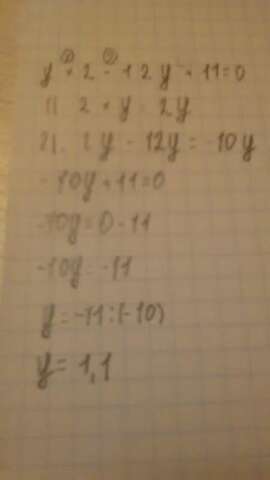 ① ②
y · 2 - 12y + 11 = 0
1). 2 · y = 2y
2). 2y - 12y = -10y
-10y + 11 = 0
-10y = 0 - 11
-10y = -11
y = -11 : (-10)
y = 1,1